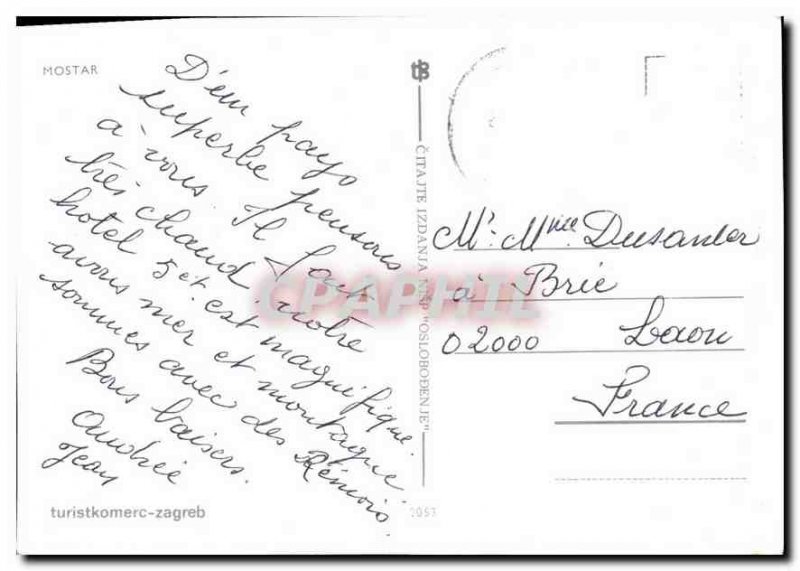 MOSTAR
D'un pays
superbe pensons
à vous. Il fait
très chaud, notre
hotel 5 et. est magnifique.
avons mer et montagne.
sommes avec des Rémois.
Bons baisers.
Andrée
Jean
turistkomerc-zagreb
ČITAJTE IZDANJA NIŠP "OSLOBOĐENJE"
2053
Mr. Mme Dusanter
à Brie
02000 Laon
France
CPAPHIL